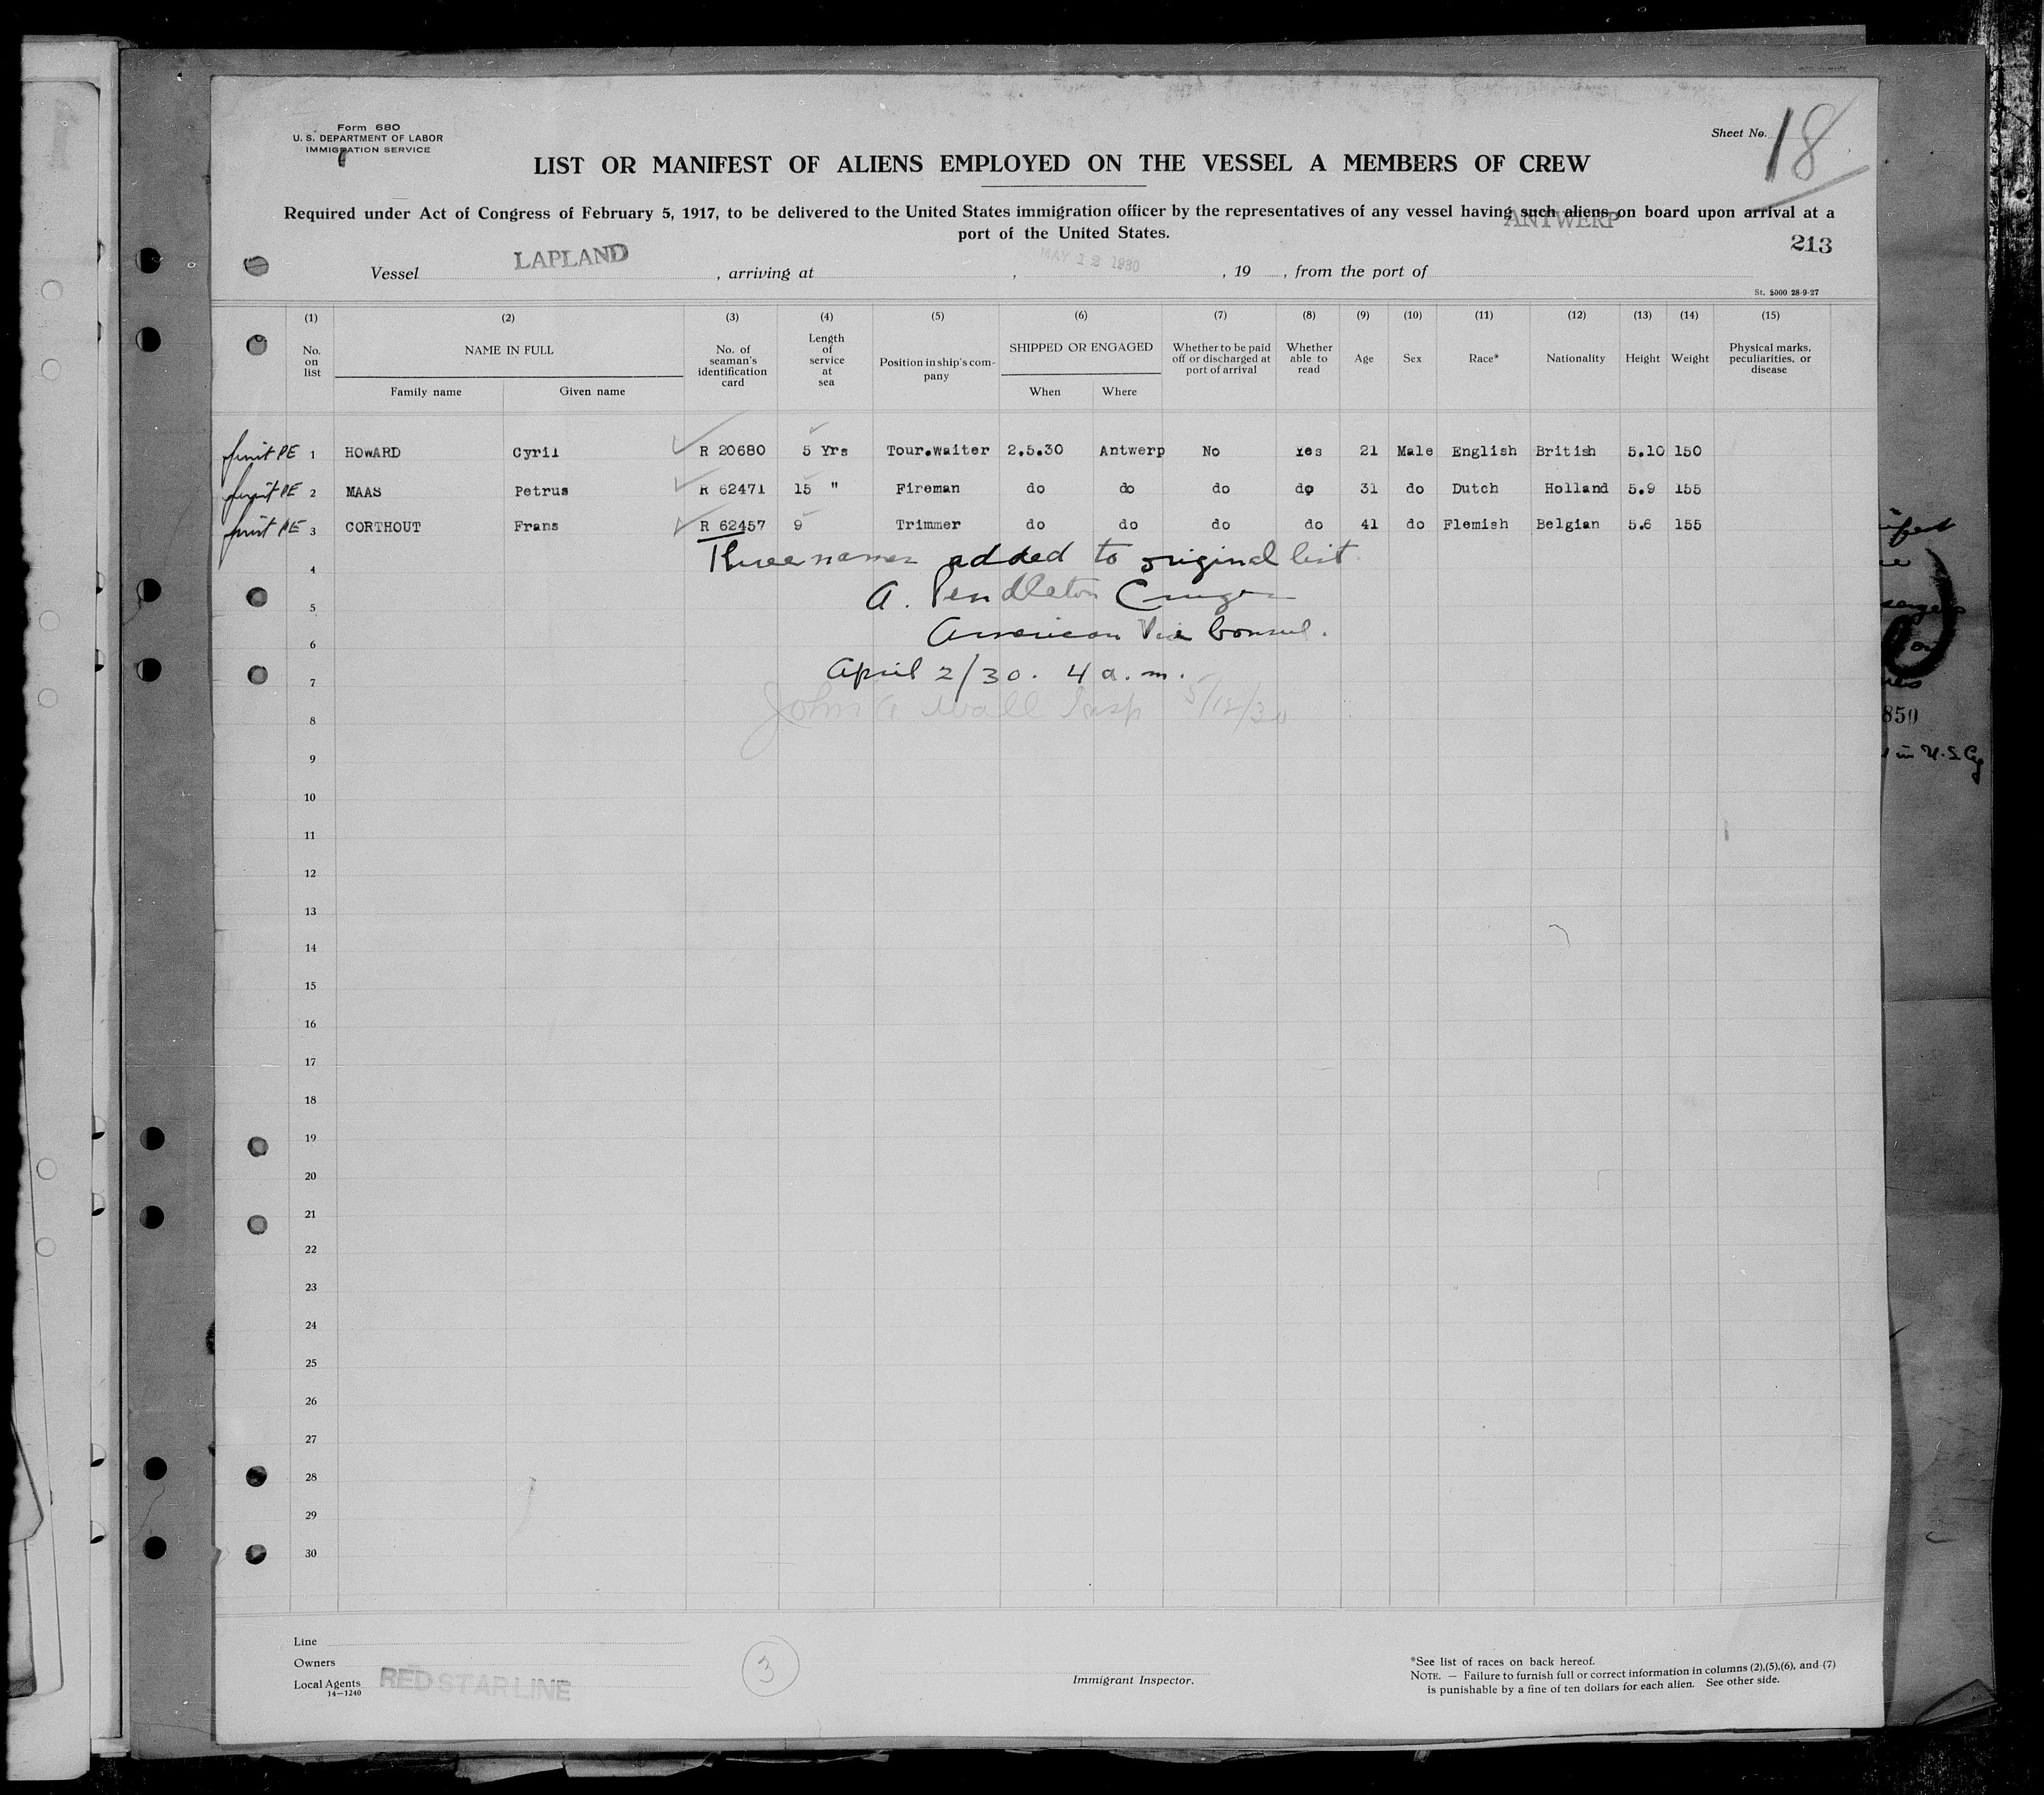 Form 680
U. S. DEPARTMENT OF LABOR
IMMIGRATION SERVICE
Sheet No. 18
LIST OR MANIFEST OF ALIENS EMPLOYED ON THE VESSEL A MEMBERS OF CREW
Required under Act of Congress of February 5, 1917, to be delivered to the United States immigration officer by the representatives of any vessel having such aliens on board upon arrival at a
port of the United States.
ANTWERP
213
Vessel LAPLAND, arriving at , MAY 12 1930, 19 , from the port of
St. 2500 28-9-27
(1) (2) (3) (4) (5) (6) (7) (8) (9) (10) (11) (12) (13) (14) (15)
No. on list NAME IN FULL No. of seaman's identification card Length of service at sea Position in ship's company SHIPPED OR ENGAGED Whether to be paid off or discharged at port of arrival Whether able to read Age Sex Race* Nationality Height Weight Physical marks, peculiarities, or disease
Family name Given name When Where
PE 1 HOWARD Cyril R 20680 5 Yrs Tour.waiter 2.5.30 Antwerp No Yes 21 Male English British 5.10 150
PE 2 MAAS Petrus R 62471 15 " Fireman do do do do 31 do Dutch Holland 5.9 155
PE 3 CORTHOUT Frans R 62457 9 Trimmer do do do do 41 do Flemish Belgian 5.6 155
Three names added to original list
4
A. Pendleton Cruger
5
American Vice Consul.
6
April 2/30. 4 a.m.
7
John A Wall Insp 5/12/30
8
9
10
11
12
13
14
15
16
17
18
19
20
21
22
23
24
25
26
27
28
29
30
Line
Owners
Local Agents RED STAR LINE
14—1240
3
Immigrant Inspector.
*See list of races on back hereof.
NOTE. — Failure to furnish full or correct information in columns (2),(5),(6), and (7)
is punishable by a fine of ten dollars for each alien. See other side.
850
in U.S.